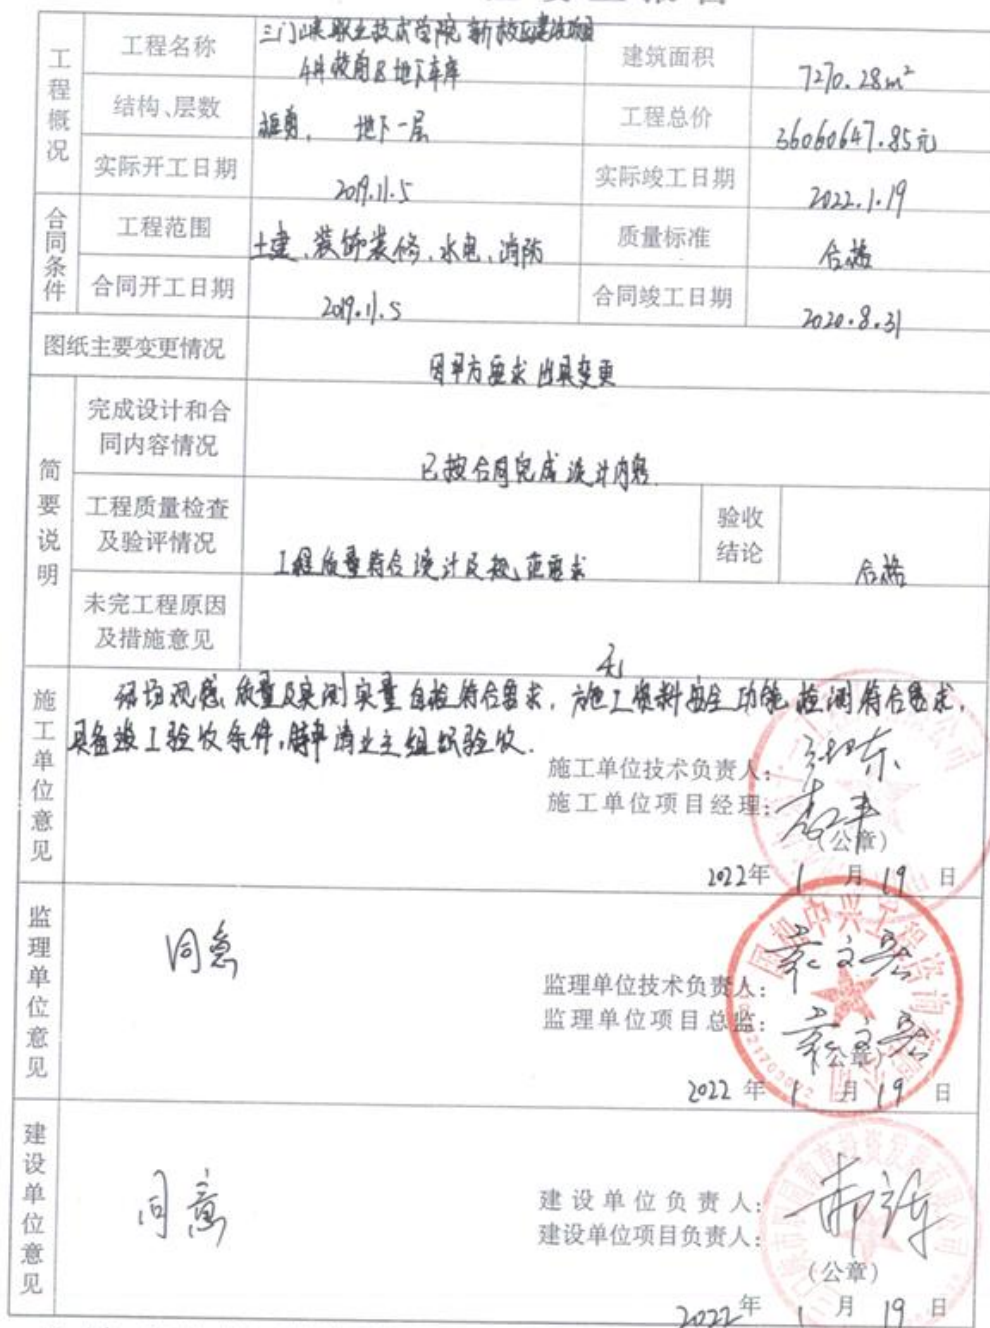 工程概况
工程名称 三门峡职业技术学院新校区建设项目
4# 教育区地下车库
建筑面积 7270.28m²
结构、层数 框剪、 地下一层
工程总价 36060647.85元
实际开工日期 2019.11.5
实际竣工日期 2022.1.19
合同条件
工程范围 土建、装饰装修、水电、消防
质量标准 合格
合同开工日期 2019.11.5
合同竣工日期 2020.8.31
图纸主要变更情况 因甲方要求出具变更
简要说明
完成设计和合
同内容情况
已按合同完成设计内容.
工程质量检查
及验评情况
工程质量符合设计及规范要求
验收
结论
合格
未完工程原因
及措施意见
无
施工单位意见
现场观感、质量及实测实量自检符合要求,施工资料安全功能检测符合要求,
具备竣工验收条件,特申请业主组织验收.
施工单位技术负责人:
施工单位项目经理:
(公章)
2022年 1 月 19 日
监理单位意见
同意
监理单位技术负责人:
监理单位项目总监:
(公章)
2022 年 1 月 19 日
建设单位意见
同意
建设单位负责人:
建设单位项目负责人:
(公章)
2022年 1 月 19 日